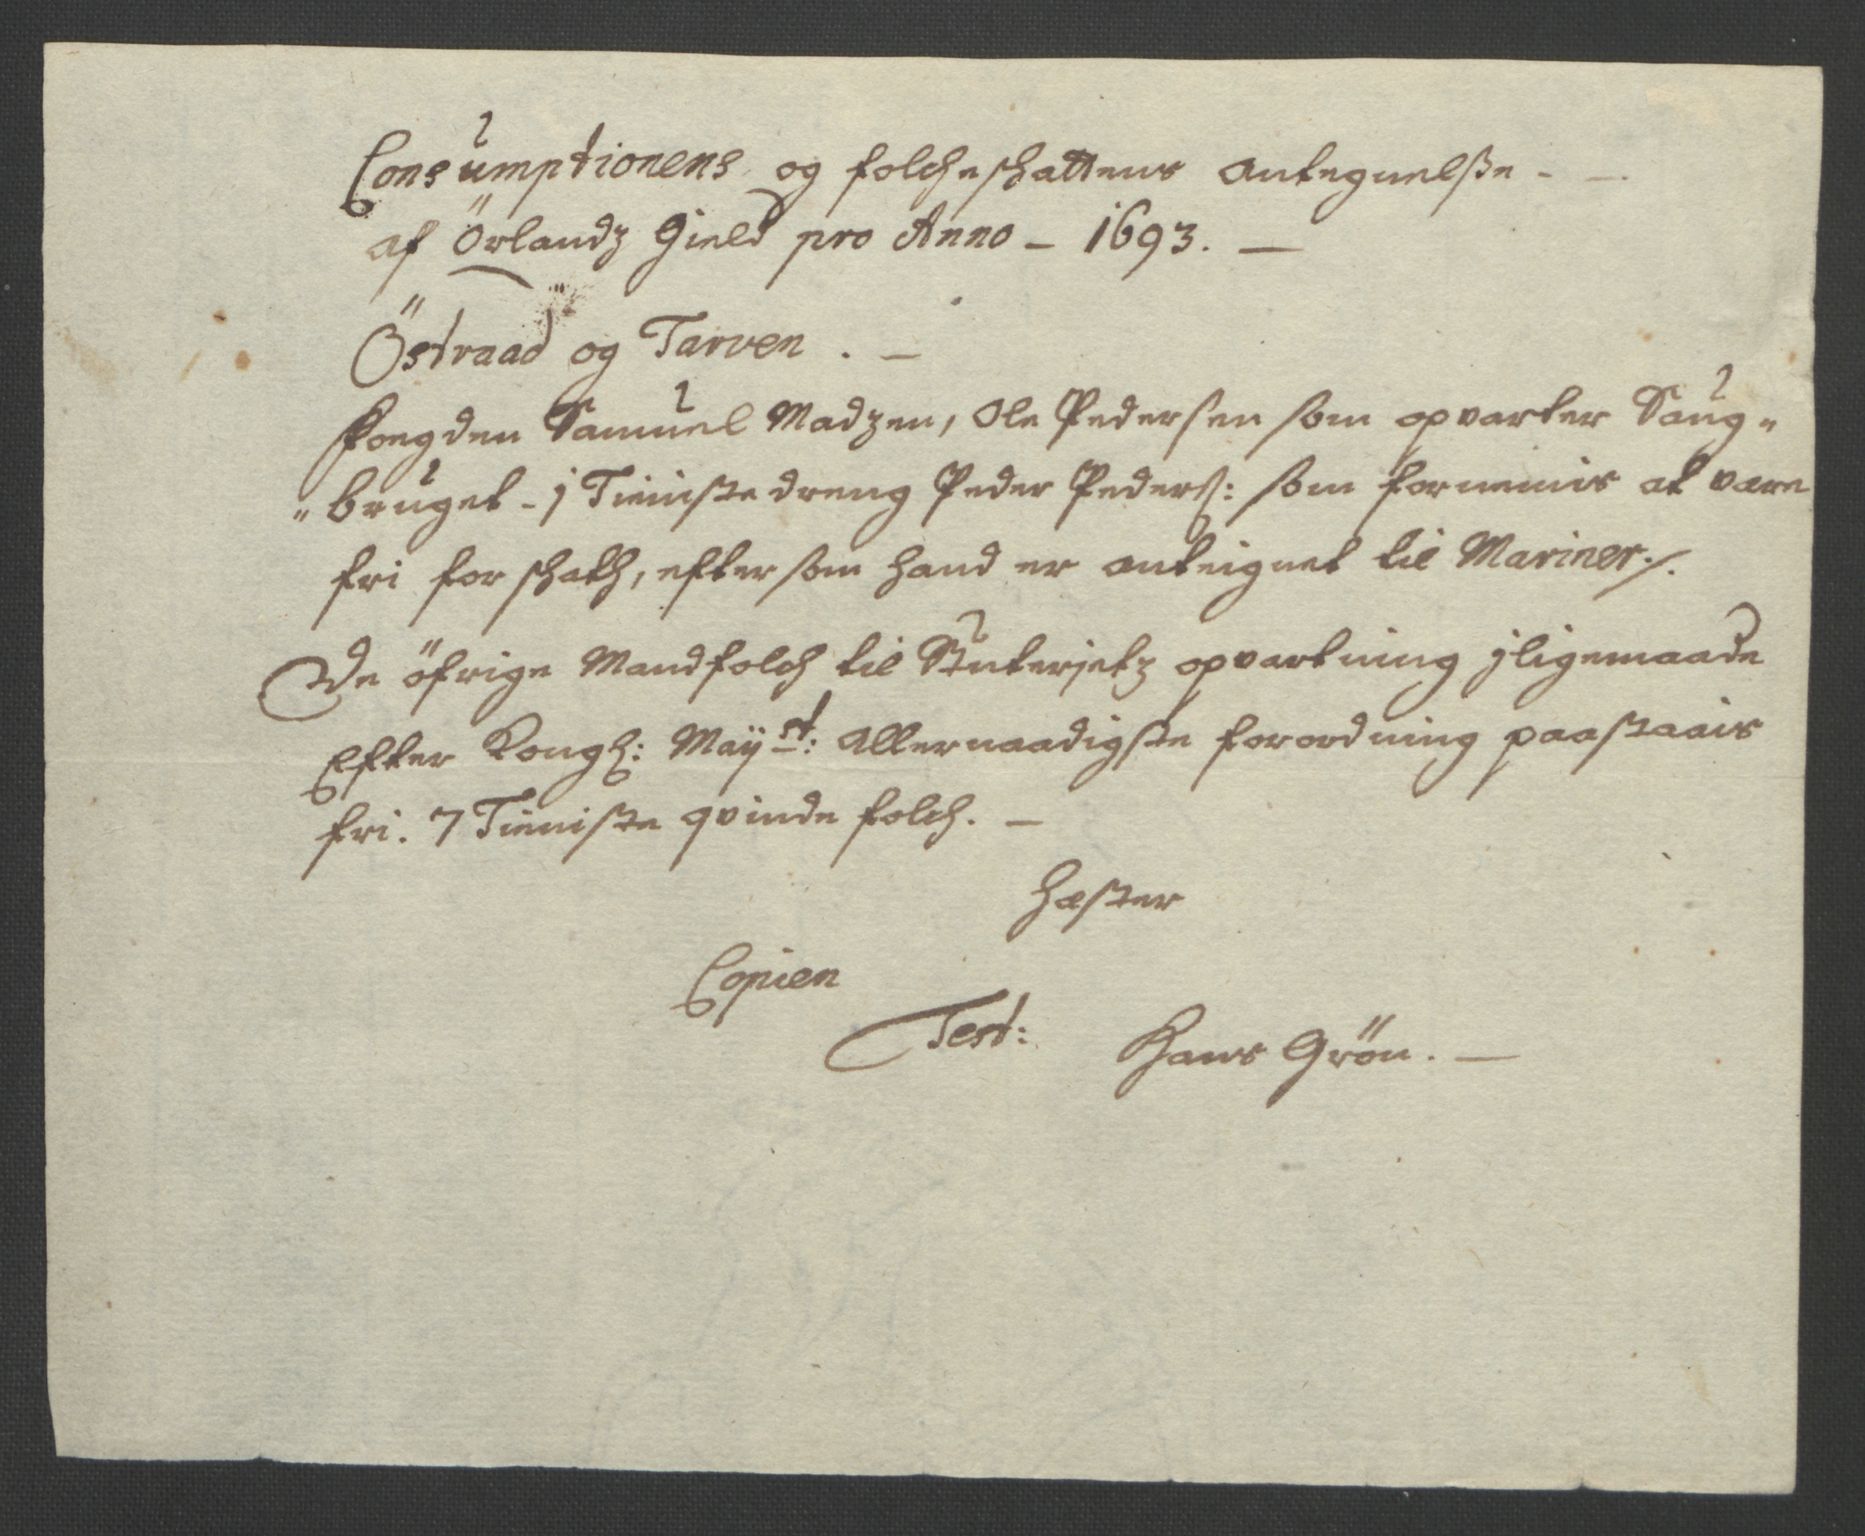 Consumptionens og folcheschattens Antegnelsse - -
af Örlandz Gield pro Anno - 1693. -
Östraad og Tarven . -
Foegden Samuel Madzen, Ole Pedersen som opvarter Saug„
„bruget - 1 Tieniste dreng Peder Peders: som formenis at være
fri for schath, efter som hand er anteignet til Mariner ./.
De öfrige Mandfolch til Stuterjetz opvartning jligemaade
Efter Kongl: Maÿst: Allernaadigste forordning paastaais
fri. 7 Tieniste qvinde folch. -
Hæster
Copien
Test: Hans Grön. -